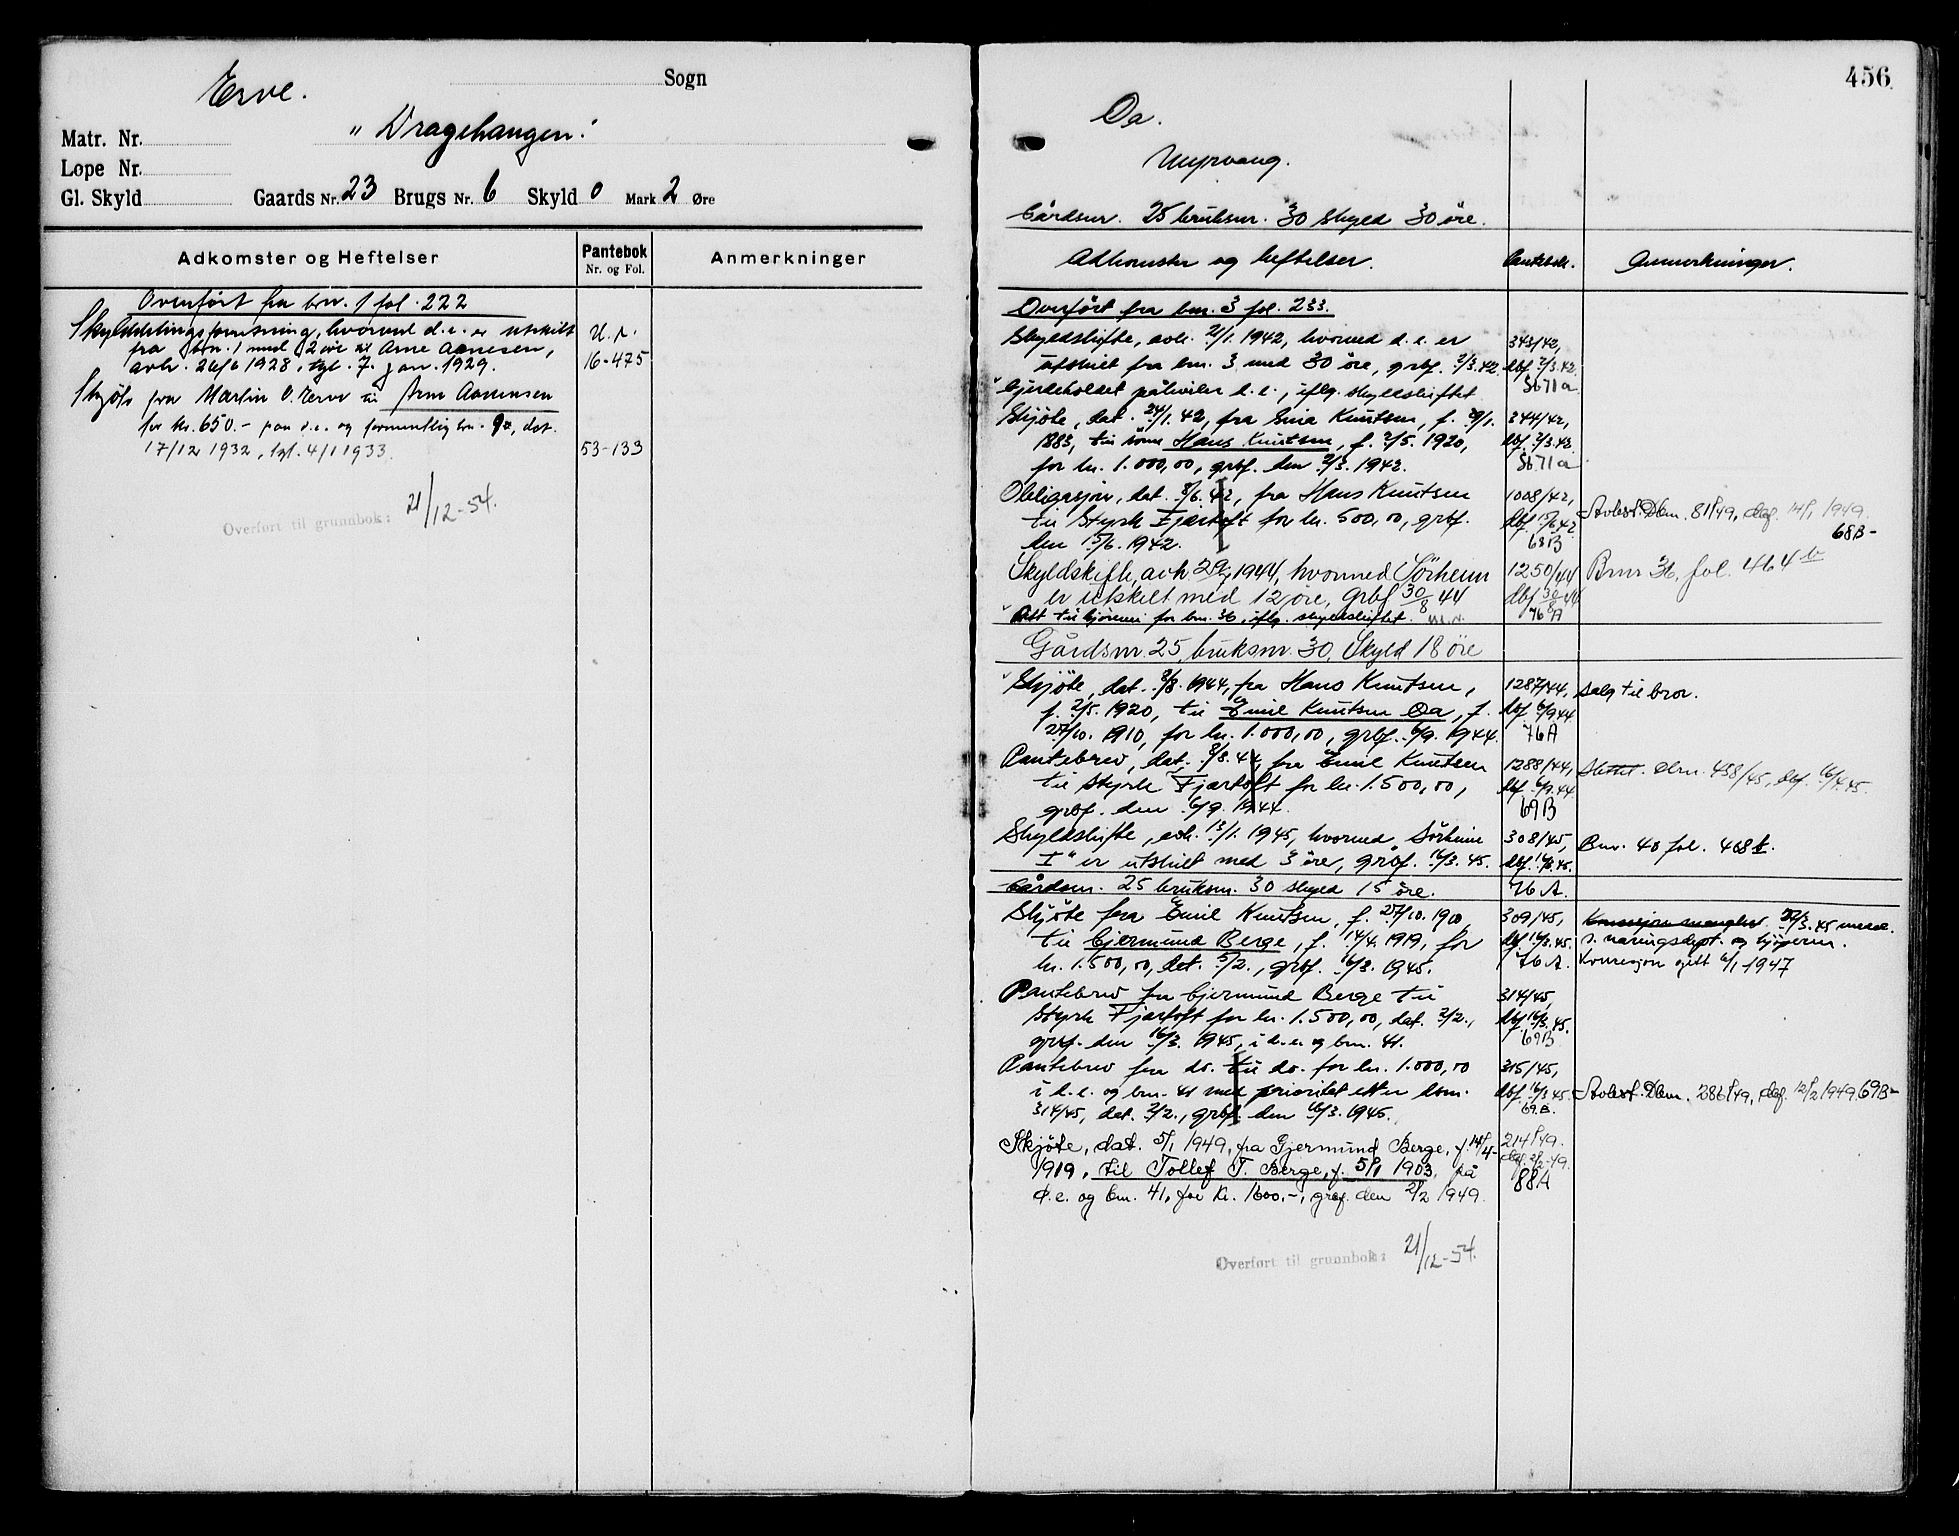 Erve.
Sogn
Matr. Nr.
"Dragehaugen."
Lope Nr.
Gl. Skyld Gaards Nr. 23 Brugs Nr. 6 Skyld 0 Mark 2 Øre
Adkomster og Heftelser
Pantebok
Nr. og Fol.
Anmerkninger
Overført fra bnr. 1 fol. 222
Skylddelingsforretning, hvorved d.e. er utskilt
fra bnr. 1 med 2 øre til Arne Aamesen,
avh. 26/6 1928, tgl. 7. jan. 1929.
16-475
Skjøte fra Martin O. Erve til Arne Aamesen
for kr. 650.- paa d.e. og bnr. 9, dat.
17/12 1932, tgl. 4/1 1933.
53-133
Overført til grunnbok: 21/12-54.
456
Oa.
Myrvang.
Gårdsnr. 25 bruksnr. 30 skyld 30 øre.
Adkomster og heftelser.
Pantebok.
Anmerkninger.
Overført fra bnr. 3 fol. 233.
Skyldskifte, avh. 21/1. 1942, hvorved d.e. er
343/42,
utskilt fra bnr. 3 med 30 øre, grbf. 2/3.42.
dbf. 2/3.42.
Gjerdeholdet påhviler d.e., iflg. skyldskiftet.
Sb71a
Skjøte, dat. 24/1.42, fra Knutsen, f. 29/1.
344/42,
1883, til sönn Hans Knutsen, f. 2/5. 1920,
dbf. 2/3.42.
for kr. 1.000,00, grbf. den 2/3. 1942.
Sb71a
Obligasjon, dat. 8/6.42, fra Hans Knutsen
1008/42,
til Styrk Fjærtoft for kr. 500,00, grbf.
dbf. 15/6.42
Avlest. Dbnr. 81/49, dag. 14/1 1949.
den 15/6. 1942.
68B
68B-
Skyldskifte, avh. 1944, hvorved Sørheim
1250/44
Bnr 36, fol. 464 b
er utskilt med 12 øre, grbf 30/8 44
dbf 30/8 44
for bnr. 36, iflg. skyldskiftet.
76A
Gårdsnr. 25, bruksnr. 30, Skyld 18 øre
Skjöte, dat. 8/8. 1944, fra Hans Knutsen,
1287/44,
Salg til bror.
f. 2/5. 1920, til Emil Knutsen Oa, f.
dbf. 6/9 44
27/10. 1910, for kr. 1.000,00, grbf. 6/9. 1944.
76A
Pantebrev, dat. 8/8.44, fra Emil Knutsen
1288/44,
Slettet. Dbnr. 458/45, dbf. 16/4.45.
til Styrk Fjærtoft for kr. 1.500,00,
dbf. 6/9.44
grbf. den 6/9. 1944.
69B
Skyldskifte, avh. 13/1. 1945, hvorved "Sörheim
308/45,
Bnr. 40 fol. 468 b.
I" er utskilt med 3 øre, grbf. 16/3. 45.
dbf. 16/3.45.
Gårdsnr. 25 bruksnr. 30 skyld 15 øre.
76A.
Skjöte fra Emil Knutsen, f. 27/10. 1910,
309/45,
Konsesjon mangler. 22/3.45
til Gjermund Berge, f. 14/4. 1919, for
dbf. 16/3.45.
kr. 1.500,00, dat. 5/2., grbf. 16/3. 1945.
76A.
Konsesjon gitt 6/1 1947
Pantebrev fra Gjermund Berge til
314/45,
Styrk Fjærtoft for kr. 1.500,00, dat. 3/2.,
dbf. 16/3.45.
grbf. den 16/3. 1945, i d.e. og bnr. 41.
69B
Pantebrev fra do. til do. for kr. 1.000,00
315/45,
i d.e. og bnr. 41 med prioritet etter dbnr.
dbf. 16/3.45.
Avlest. Dbnr. 286/49, dag. 12/2 1949 69B-
314/45, dat. 3/2., grbf. den 16/3. 1945.
69B.
Skjøte, dat. 5/1 1949, fra Gjermund Berge, f. 14/4-
214/49.
1919, til Tollef T. Berge, f. 5/1 1903, på
dag. 2/2-49.
d.e. og bnr. 41, for kr. 1600.-, grbf. den 2/2 1949.
88A
Overført til grunnbok: 21/12-54.